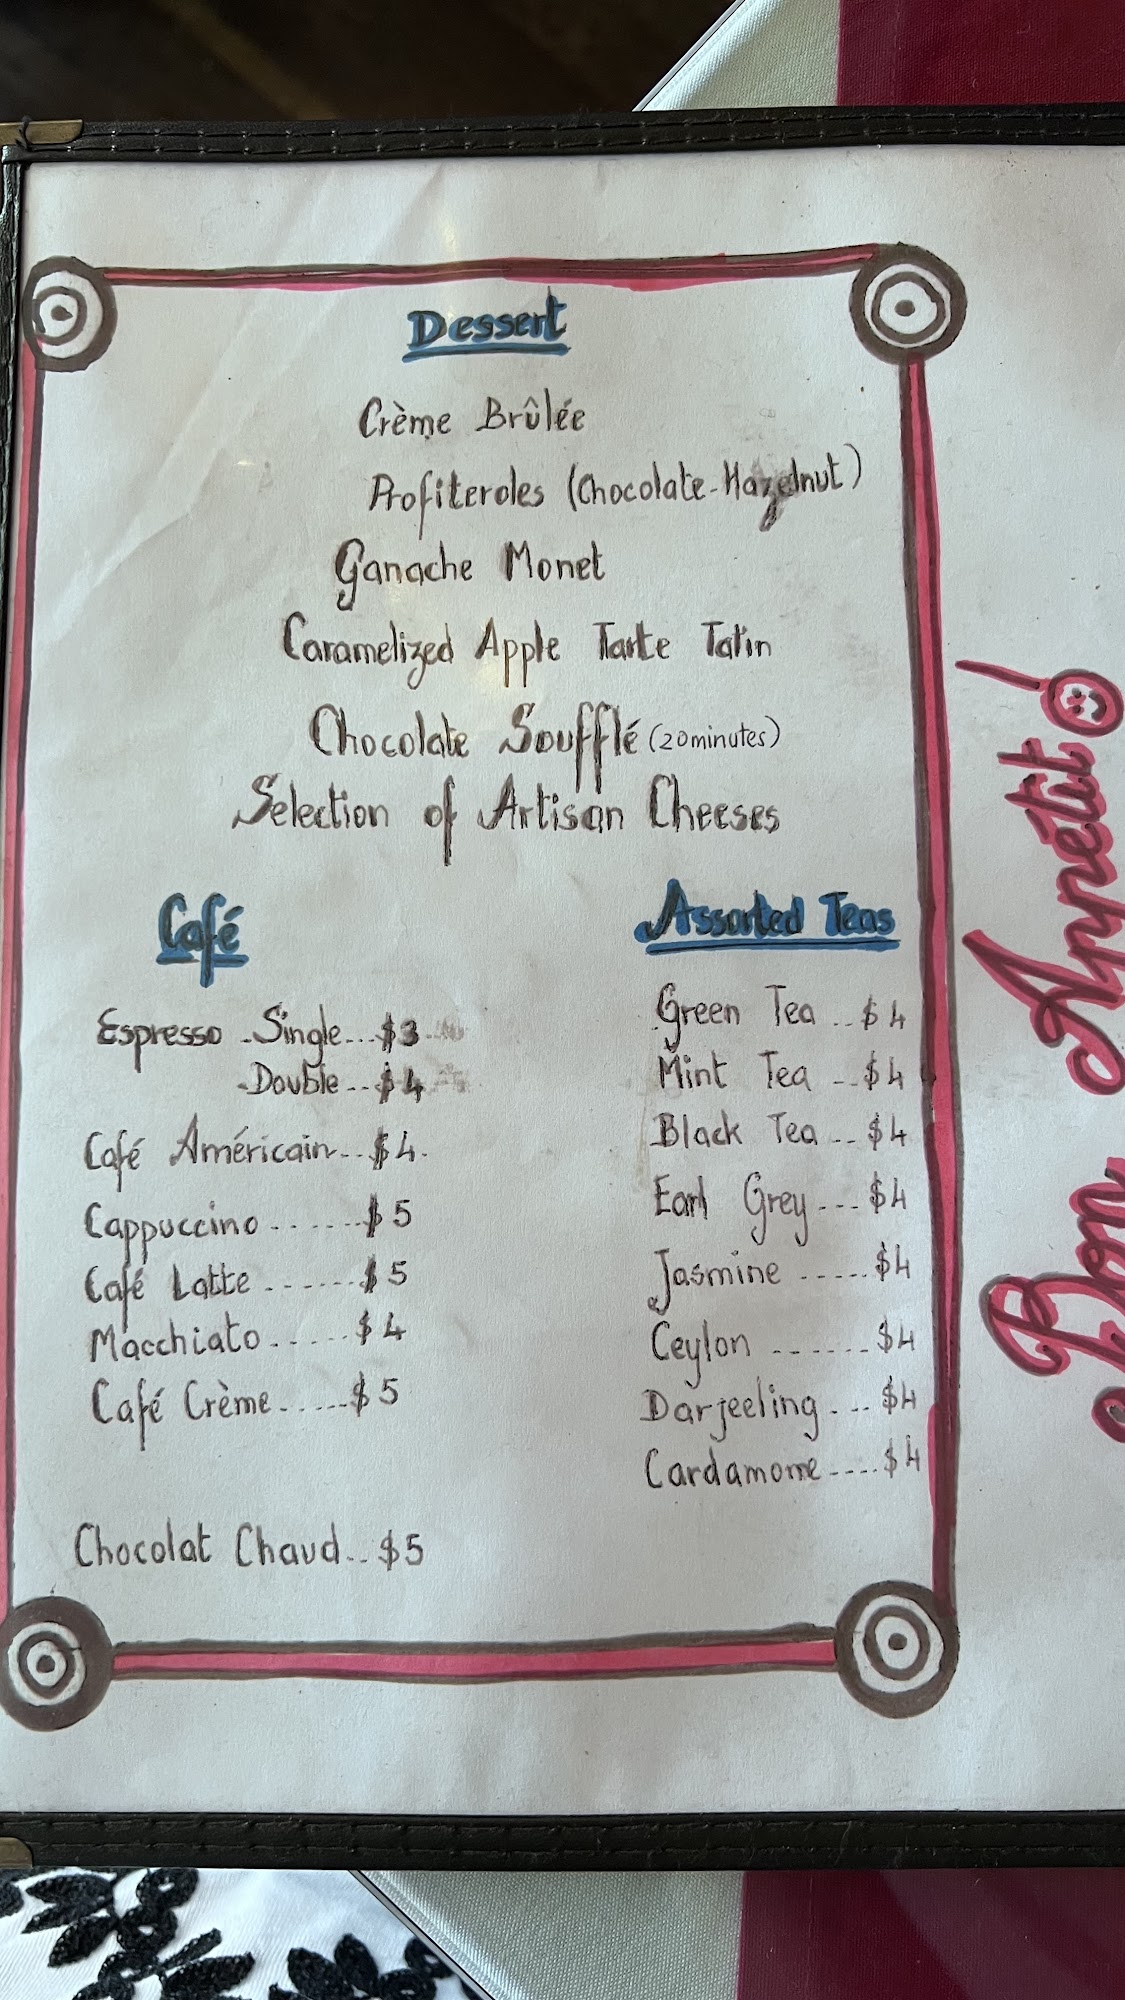 Dessert
Crème Brûlée
Profiteroles (Chocolate-Hazelnut)
Ganache Monet
Caramelized Apple Tarte Tatin
Chocolate Soufflé (20minutes)
Selection of Artisan Cheeses
Café
Espresso -Single...$3
-Double...$4
Café Américain...$4.
Cappuccino......$5
Café Latte.......$5
Macchiato.....$4
Café Crème.....$5
Chocolat Chaud..$5
Assorted Teas
Green Tea ..$4
Mint Tea ..$4
Black Tea ..$4
Earl Grey...$4
Jasmine .....$4
Ceylon ......$4
Darjeeling...$4
Cardamome....$4
Bon Appétit!